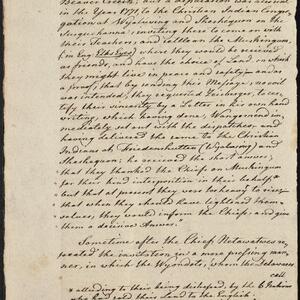 Beaver Creek),
in the Year 1771 to the Christian Indian Congre-
gation at Wyalusing and Sheshequon on the
Susquehanna; inviting them to come on with
their Teachers, and on the Muskingum,
(in Eng. Elks Eyes) where they would be received
as friends, and have the choice of Land, on which
they might live in peace and safety: and as
a proof, that by sending their Message, no evil
was intended, they requested Zeisberger, to cer-
tify their sincerity by a Letter in his own hand
writing, which having done, Wangomend im-
mediately set out with the dispatches, and
having delivered the same to the Christian
Indians at Friedenshutten (Wyalusing) and
Sheshequon; he received the short answer,
that they thanked the Chiefs on Muskingum
for their kind interposition in their behalf
but that at present they were too heavy to rise;
that when they should have lightend them-
selves, they would inform the Chiefs, and give
them a decisive Answer.
Sometime after the Chief Netawatwes re-
peated the invitation in a more pressing man-
ner, in which the Wyondots, whom the Delawares
call
according to their being
who had said their Land to the English.